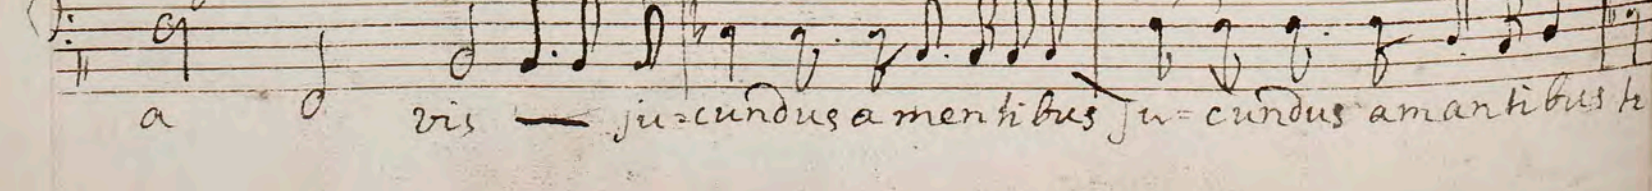 a vis — ju=cundus amentibus ju=cundus amantibus